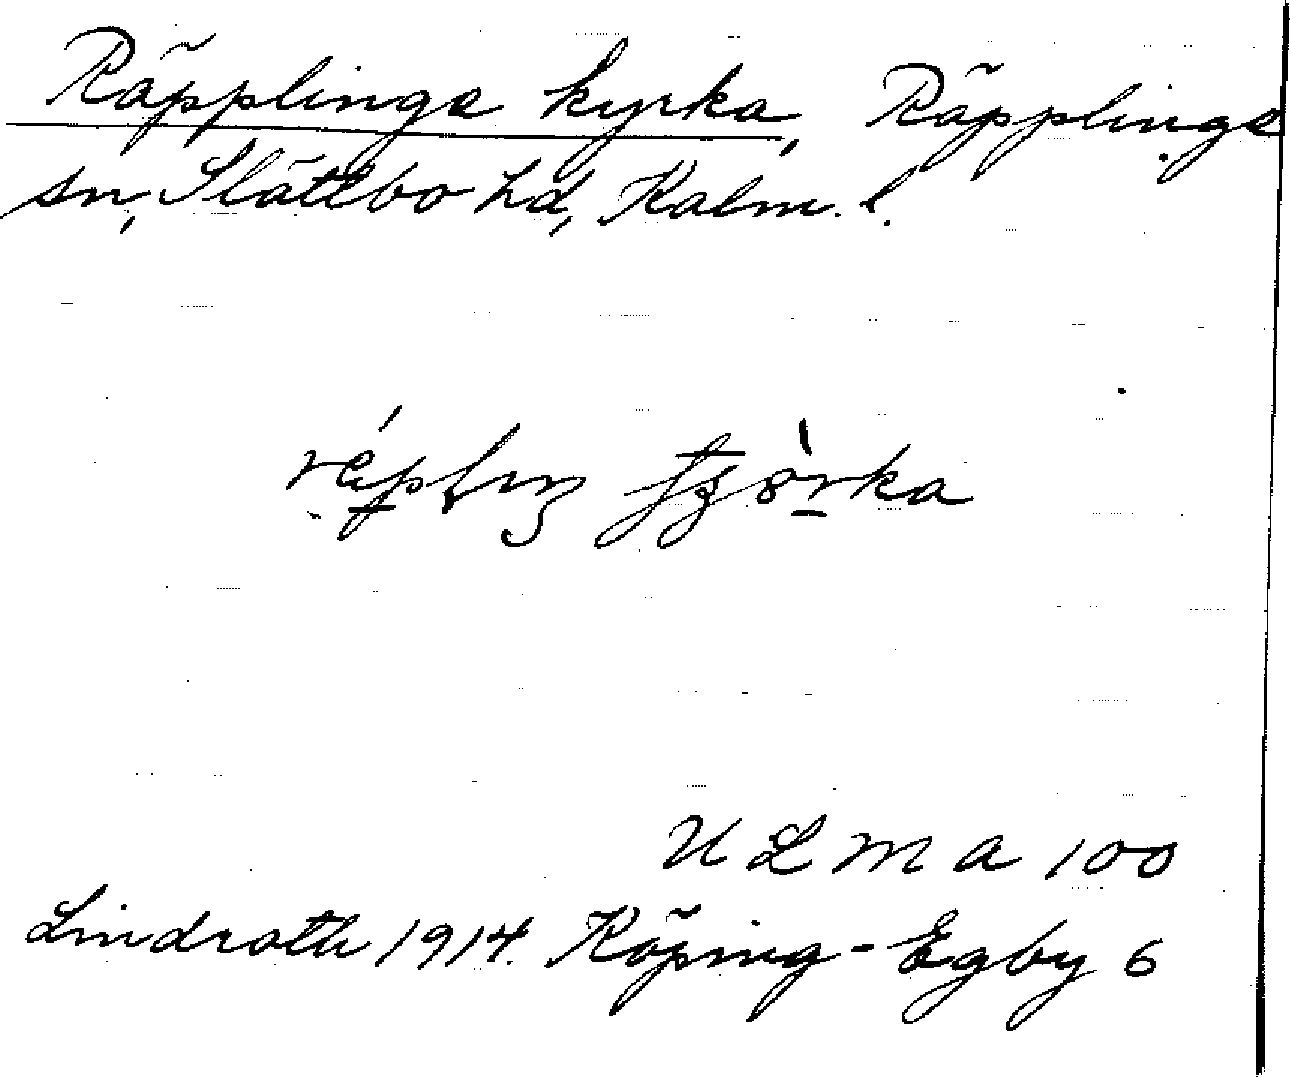 Räpplinge kyrka, Räpplinge
sn, Slättbo hd, Kalm. l.
ULMA 100
Lindroth 1914. Köping-Egby 6